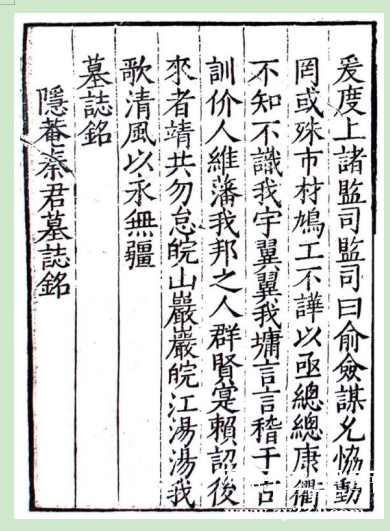 爰度上諸監司監司曰俞僉謀允恊動
罔或殊市材鳩工不譁以亟總總康衢
不知不識我宇翼翼我墉言言稽于古
訓价人維藩我邦之人群賢寔賴詔後
來者靖共勿怠皖山巖巖皖江湯湯我
歌清風以永無疆
墓誌銘
隱菴秦君墓誌銘